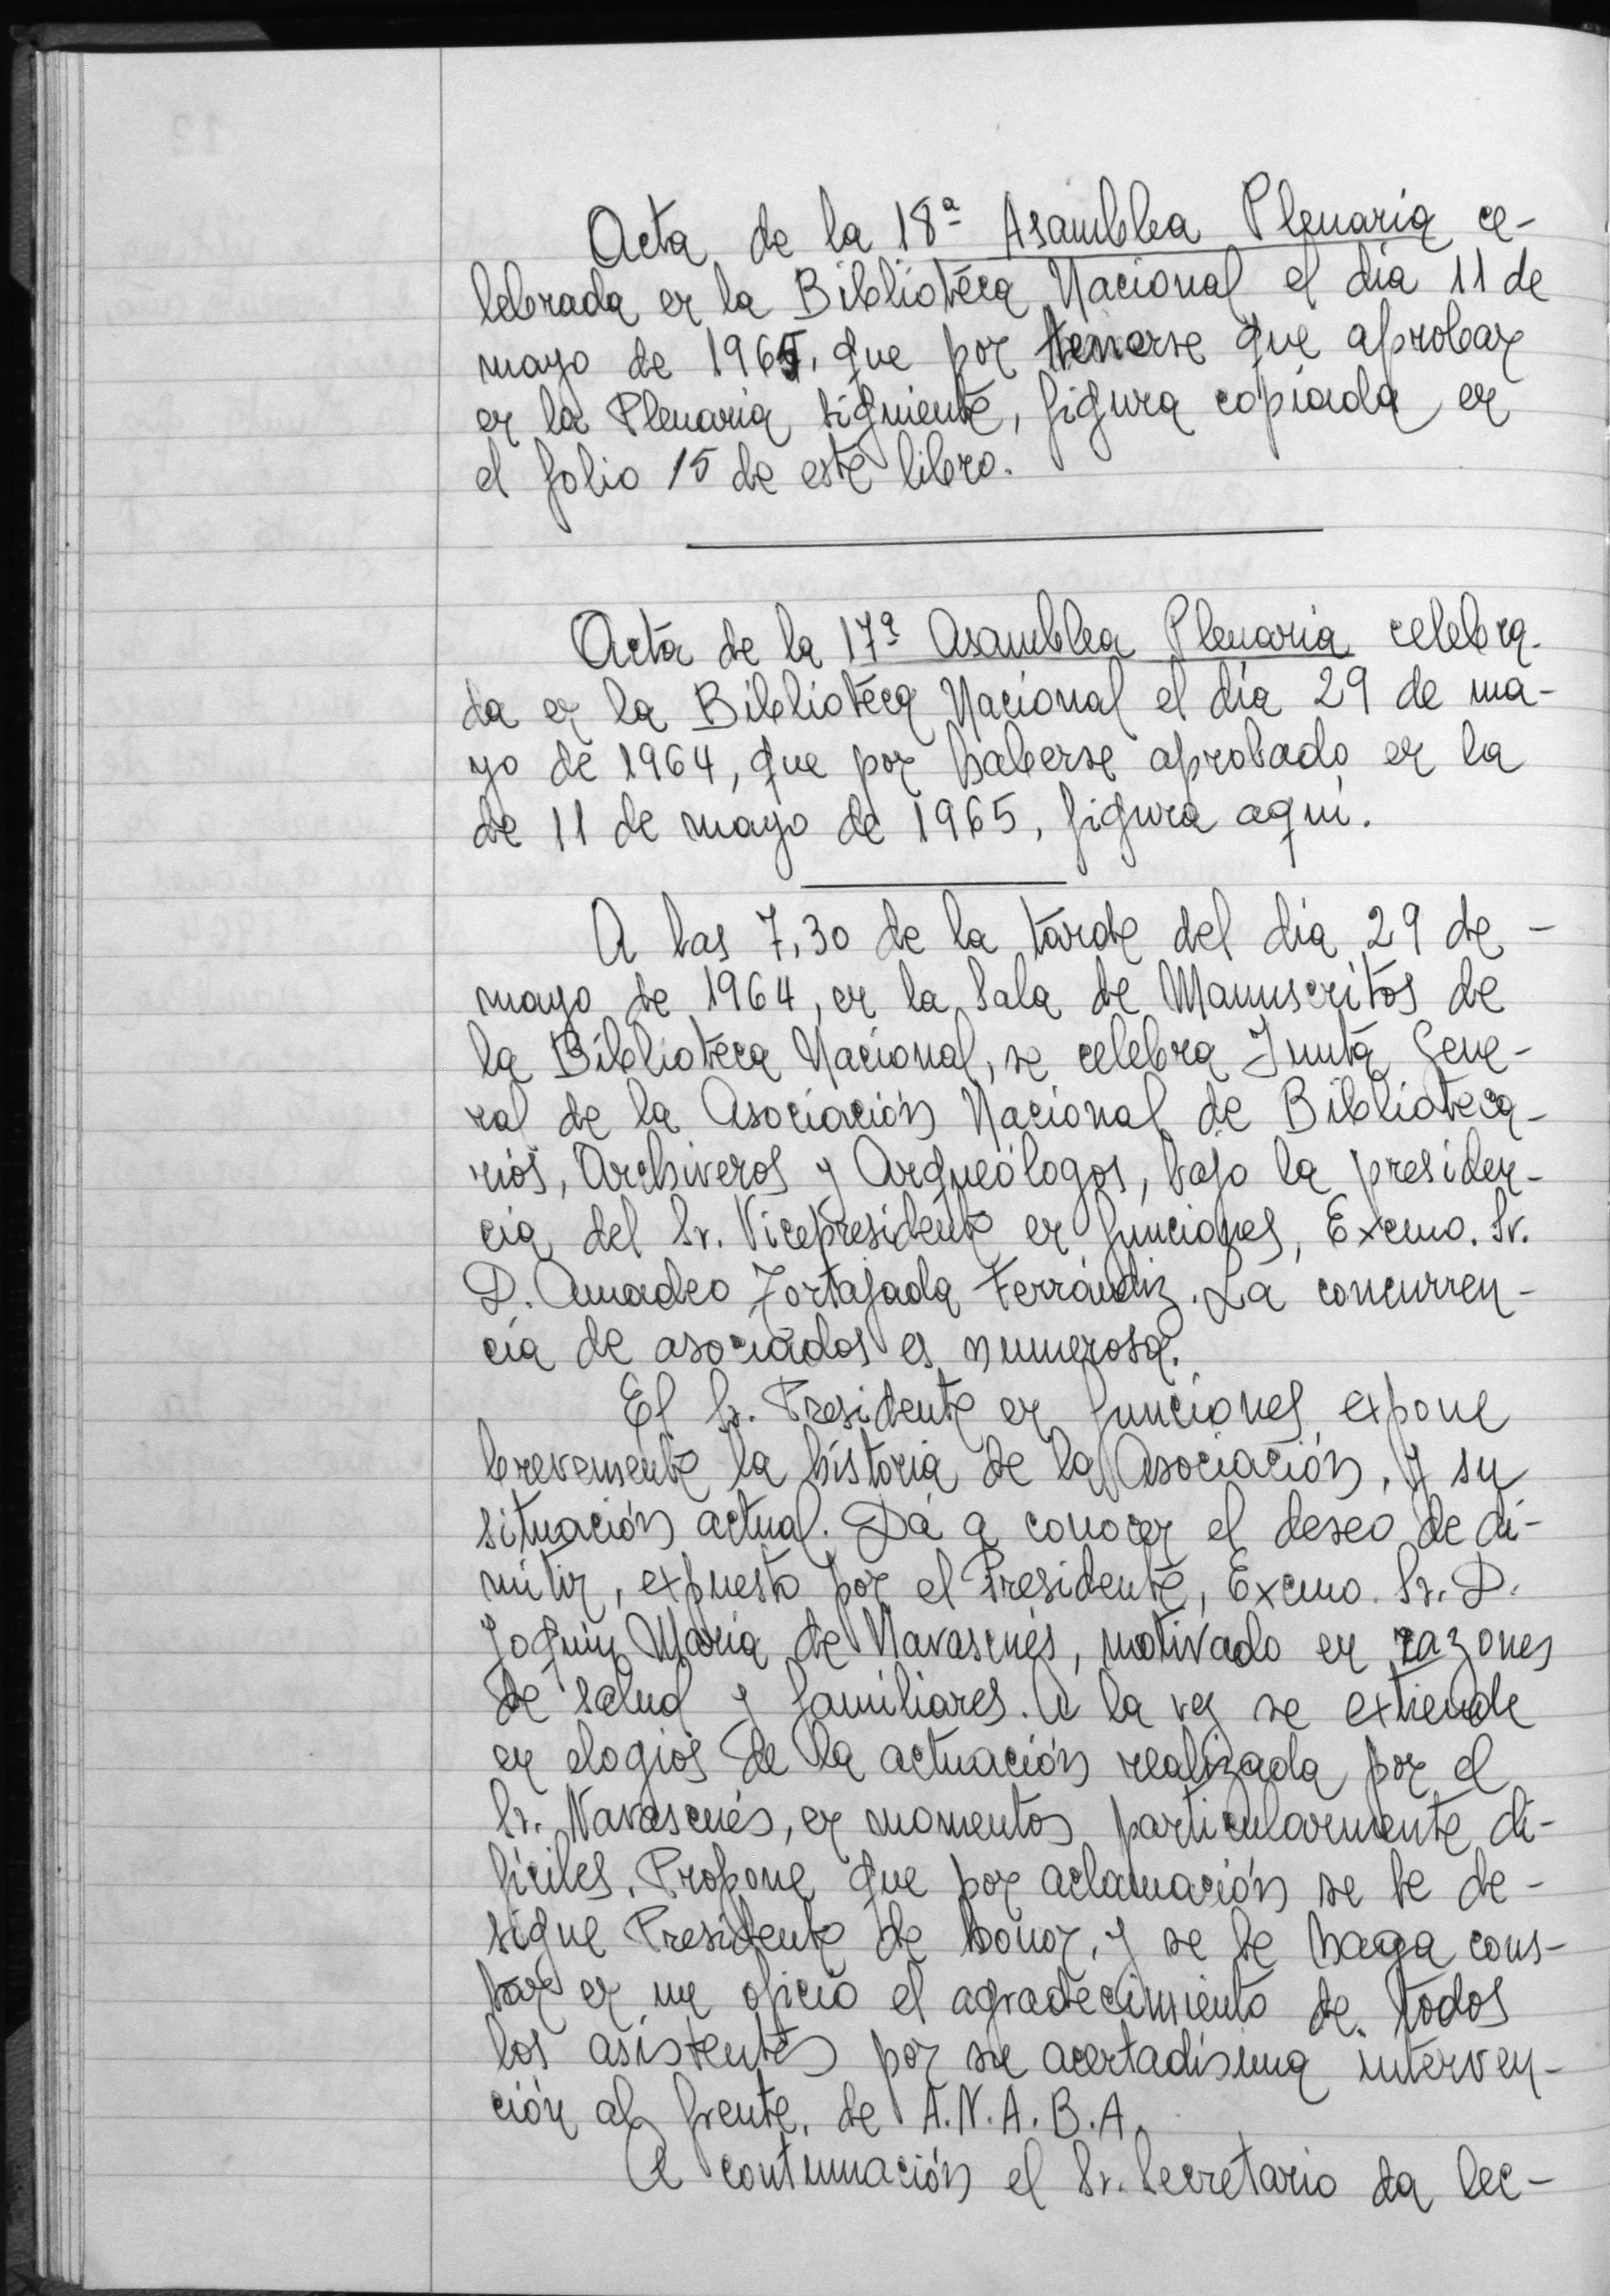 Acta de la 18ª Asamblea Plenaria ce-
lebrada en la Biblioteca Nacional el día 11 de
mayo de 1965, que por tenerse que aprobar
en la Plenaria siguiente, figura copiada en
el folio 15 de este libro.
Acta de la 17ª Asamblea Plenaria celebra-
da en la Biblioteca Nacional el día 29 de ma-
yo de 1964, que por haberse aprobado en la
de 11 de mayo de 1965, figura aquí.
A las 7,30 de la tarde del día 29 de -
mayo de 1964, en la Sala de Manuscritos de
la Biblioteca Nacional, se celebra Junta Gene-
ral de la Asociación Nacional de Biblioteca-
rios, Archiveros y Arqueólogos, bajo la presiden-
cia del Sr. Vicepresidente en funciones, Excmo. Sr.
D. Amadeo Tortajada Ferrándiz. La concurren-
cia de asociados es numerosa.
El Sr. Presidente en funciones expone
brevemente la historia de la Asociación, y su
situación actual. Dá a conocer el deseo de di-
mitir, expuesto por el Presidente, Excmo. Sr. D.
Joquin María de Navascués, motivado en razones
de salud y familiares. A la vez se extiende
en elogios de la actuación realizada por el
Sr. Navascués, en momentos particularmente di-
fíciles. Propone que por aclamación se le de-
signe Presidente de honor, y se le haga cons-
tar en un oficio el agradecimiento de todos
los asistentes por su acertadísima interven-
ción al frente de A.N.A.B.A.
A continuación el Sr. Secretario da lec-
12